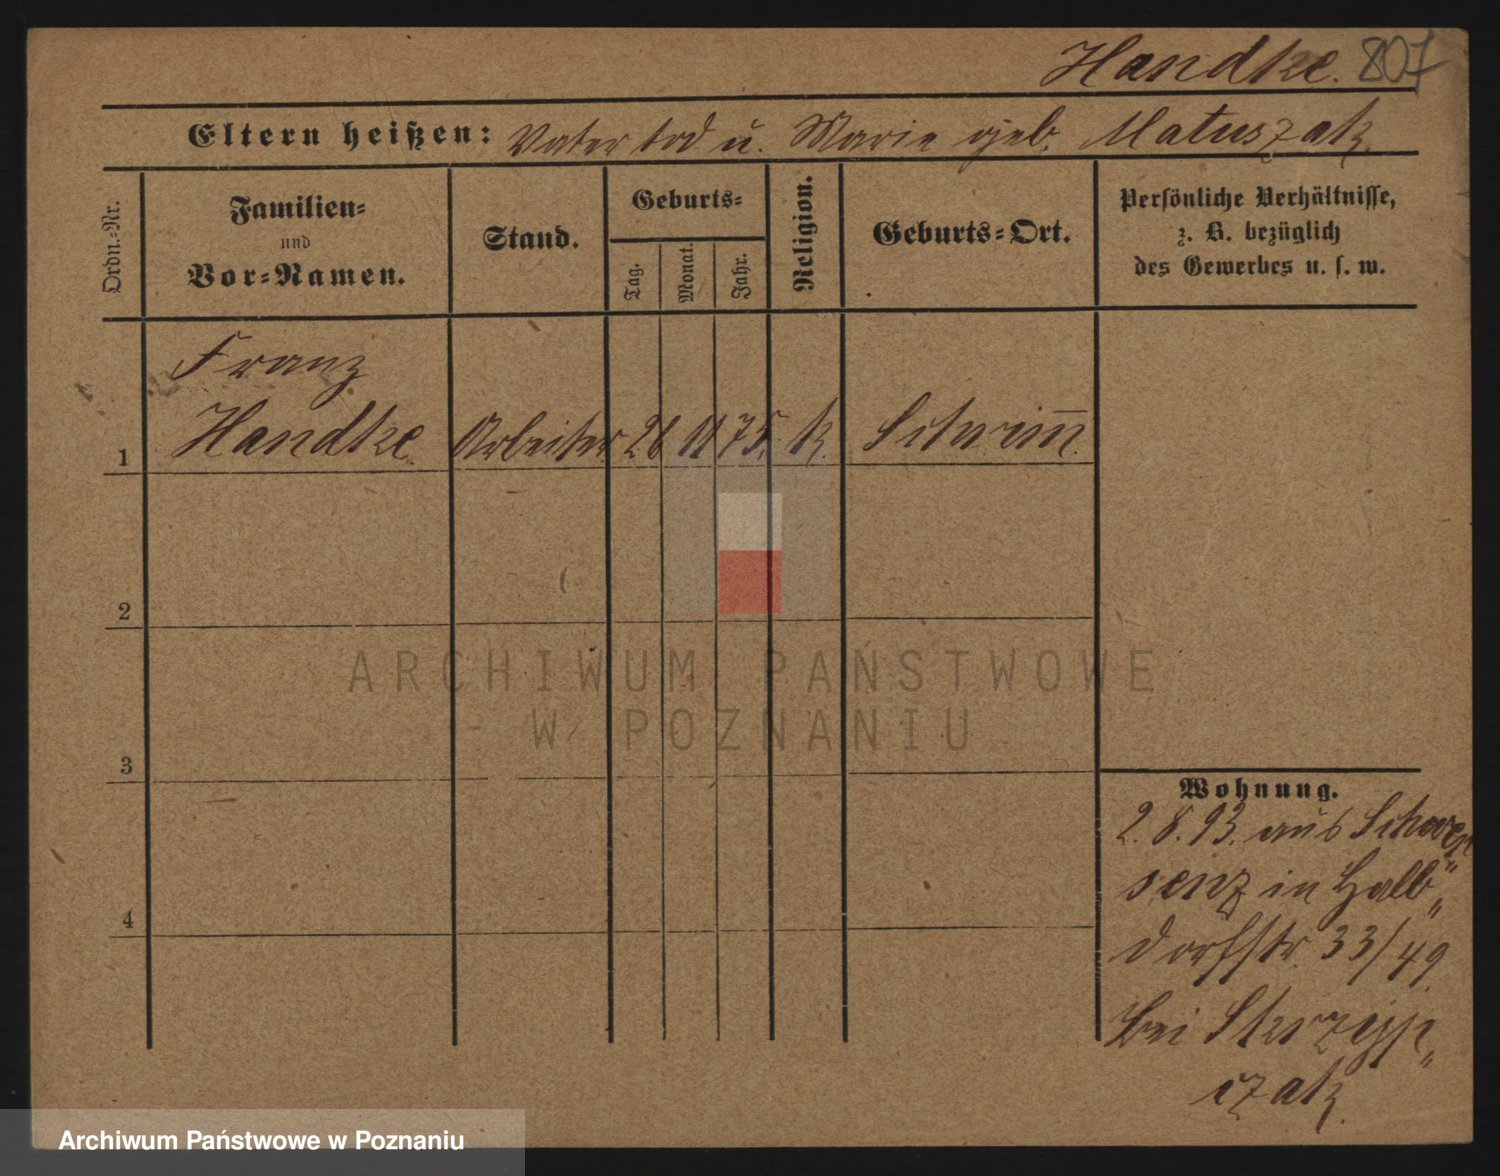 Handke. 807
Eltern heißen: Vater tod u. Marie geb. Matuszak.
Ordn.-Nr.
Familien-
und
Vor-Namen.
Stand.
Geburts-
Tag.
Monat.
Jahr.
Religion.
Geburts-Ort.
Persönliche Verhältnisse,
z. B. bezüglich
des Gewerbes u. s. w.
Franz
1 Handke. Arbeiter 26 11 75. k.
2
3
4
ARCHIWUM PAŃSTWOWE
- W POZNANIU
Wohnung.
2. 8. 93. aus Schwer„
senz in Halb„
dorfstr. 33/49.
bei Skrzyp„
czak.
Archiwum Państwowe w Poznaniu